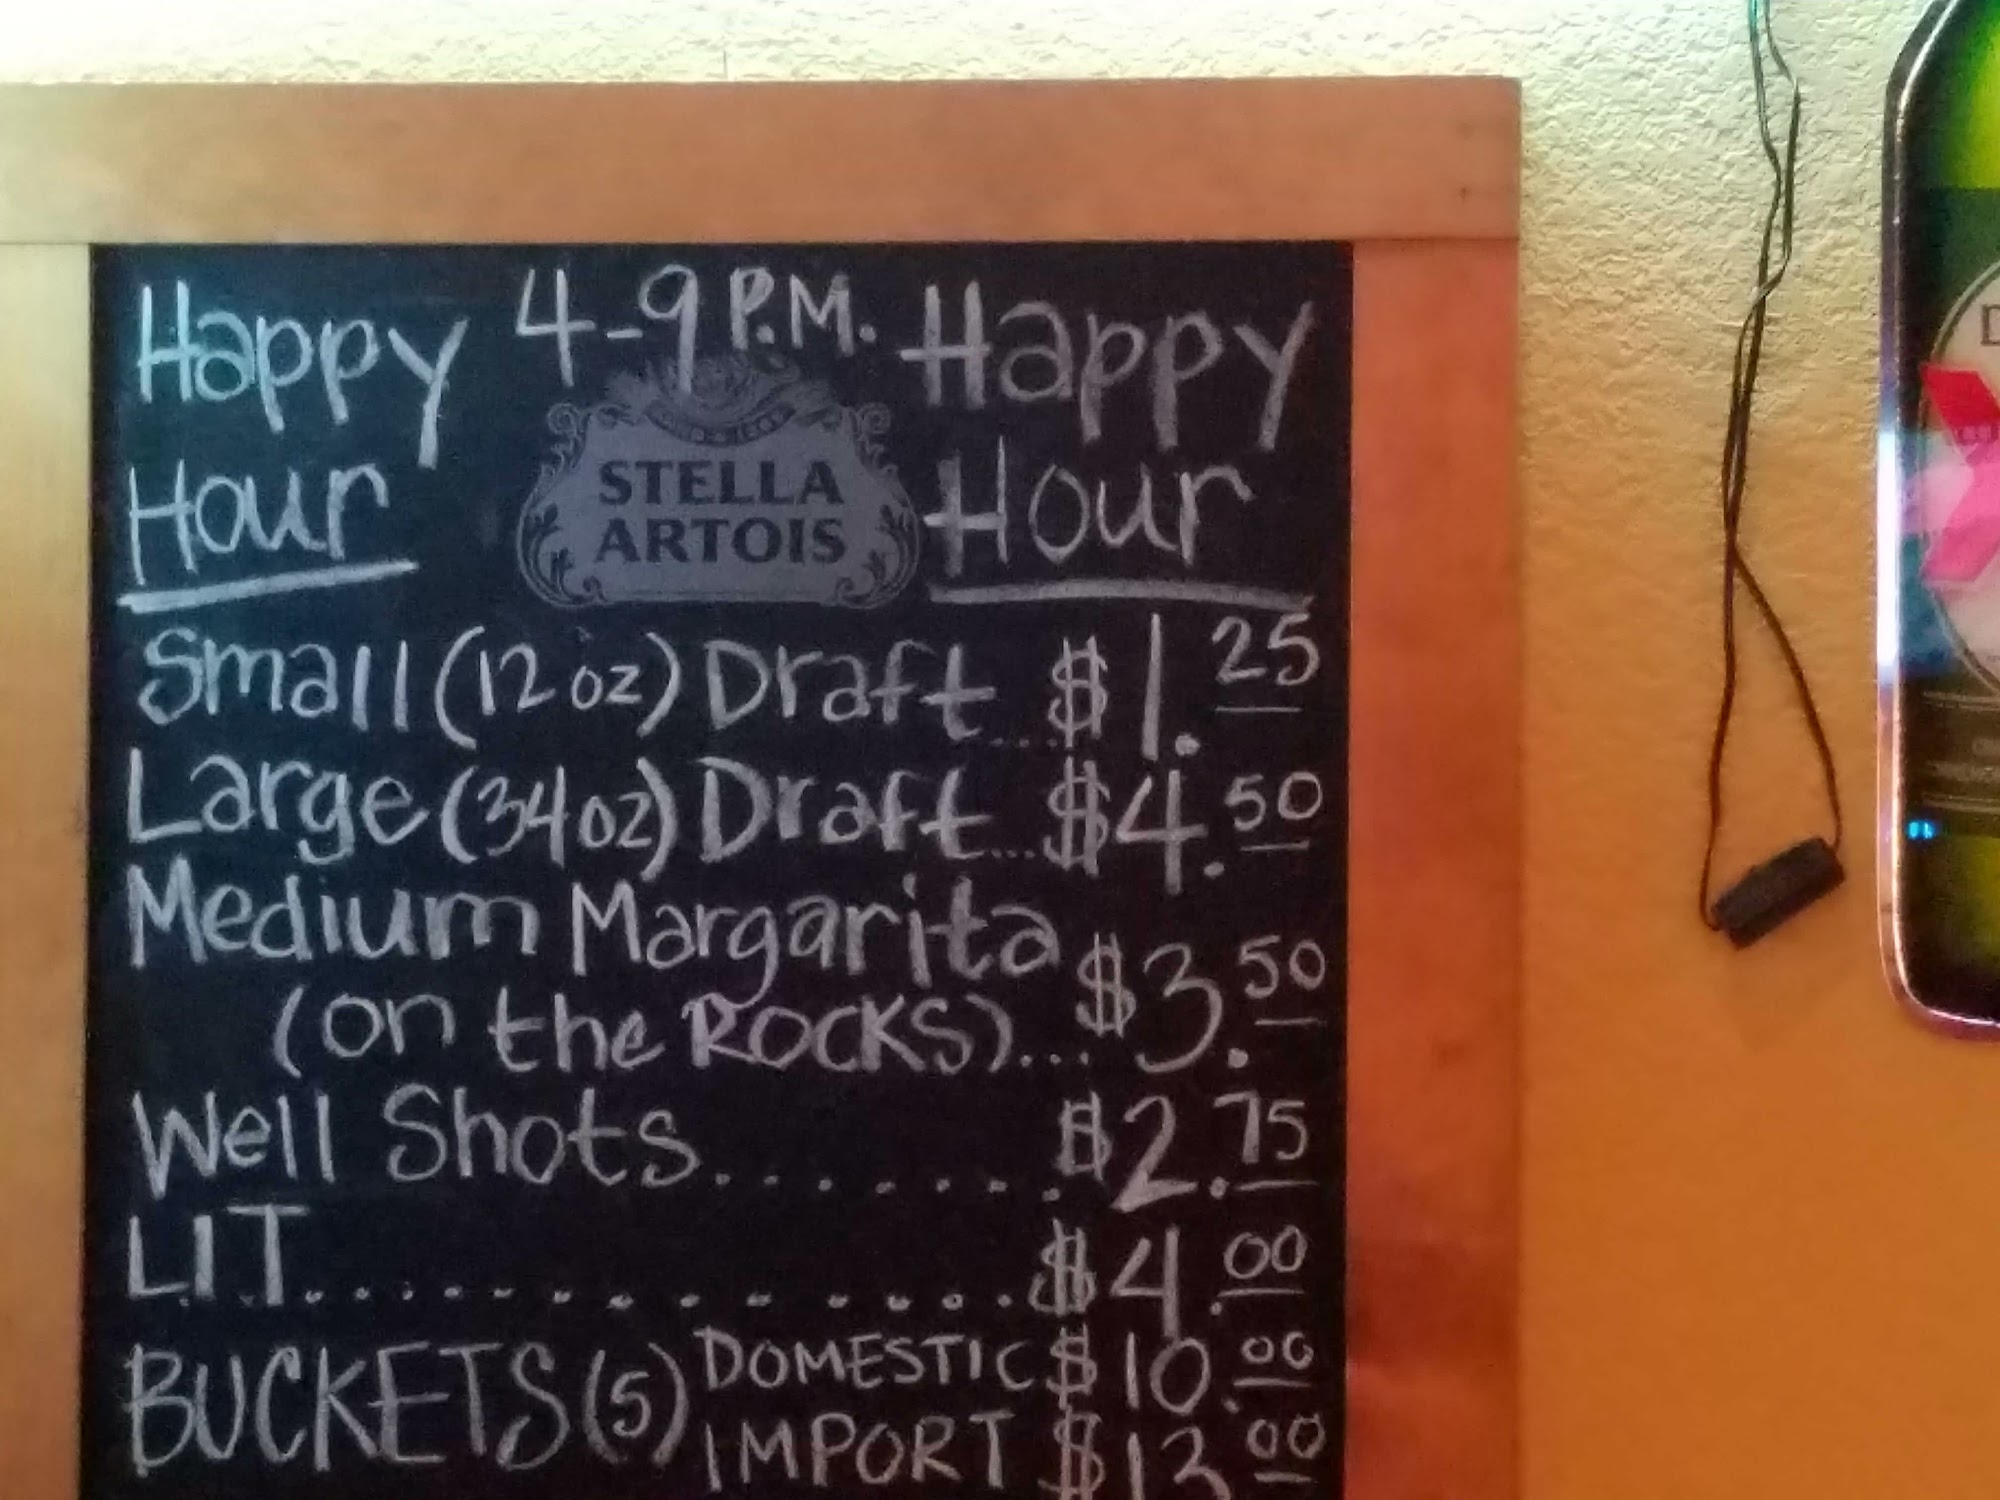 Happy 4-9 P.M. Happy
Hour STELLA ARTOIS Hour
Small (12 oz) Draft...$1.25
Large (34 oz) Draft...$4.50
Medium Margarita
(on the ROCKS)...$3.50
Well Shots.......$2.75
LIT.............$4.00
BUCKETS (5) DOMESTIC $10.00
IMPORT $13.00